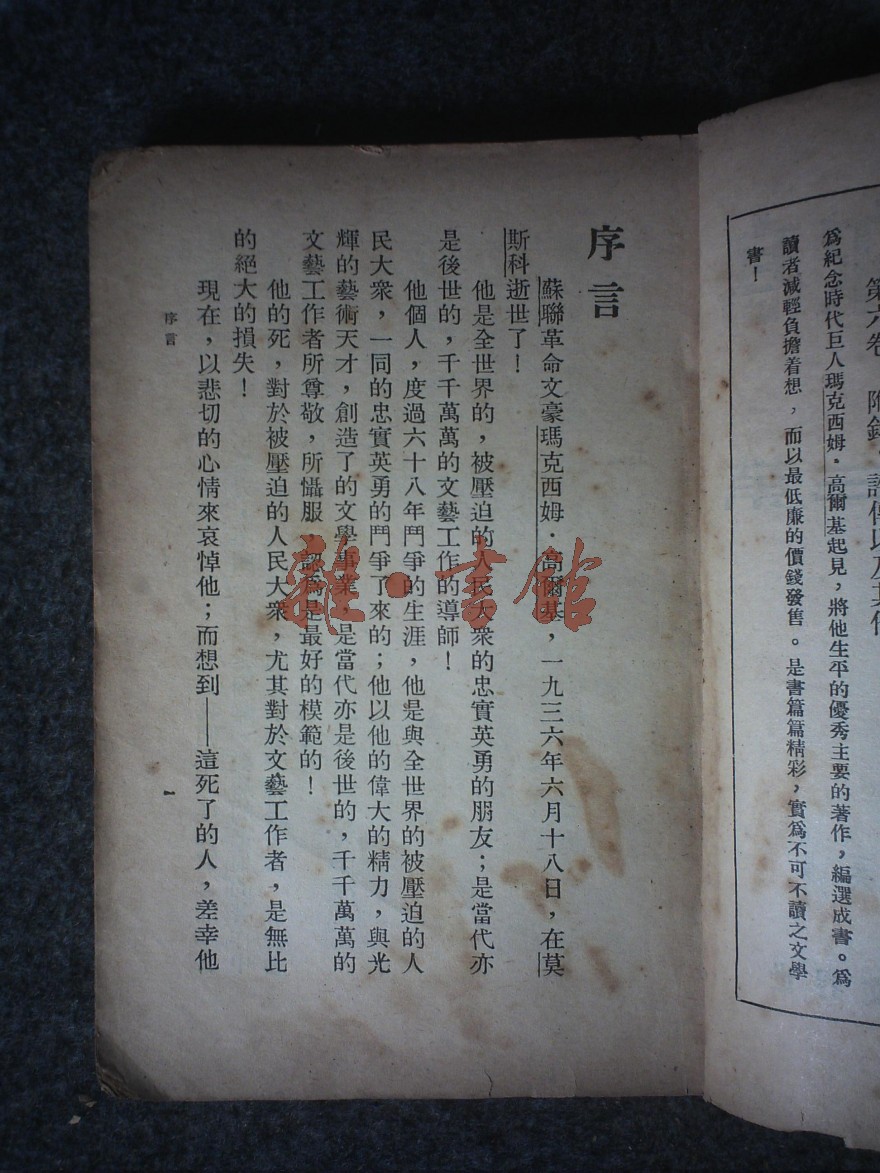 第六卷 附錄
爲紀念時代巨人瑪克西姆·高爾基起見，將他生平的優秀主要的著作，編選成書。爲
讀者減輕負擔着想，而以最低廉的價錢發售。是書篇篇精彩，實爲不可不讀之文學
書！
序言
蘇聯革命文豪瑪克西姆·高爾基，一九三六年六月十八日，在莫
斯科逝世了！
他是全世界的，被壓迫的人民大衆的忠實英勇的朋友；是當代亦
是後世的，千千萬萬的文藝工作的導師！
他個人，度過六十八年鬥爭的生涯，他是與全世界的被壓迫的人
民大衆，一同的忠實英勇的鬥爭了來的；他以他的偉大的精力，與光
輝的藝術天才，創造了的文學事業，是當代亦是後世的，千千萬萬的
文藝工作者所尊敬，所懾服，認爲是最好的模範的！
他的死，對於被壓迫的人民大衆，尤其對於文藝工作者，是無比
的絕大的損失！
現在，以悲切的心情來哀悼他；而想到——這死了的人，差幸他
序言 一
雜·書館